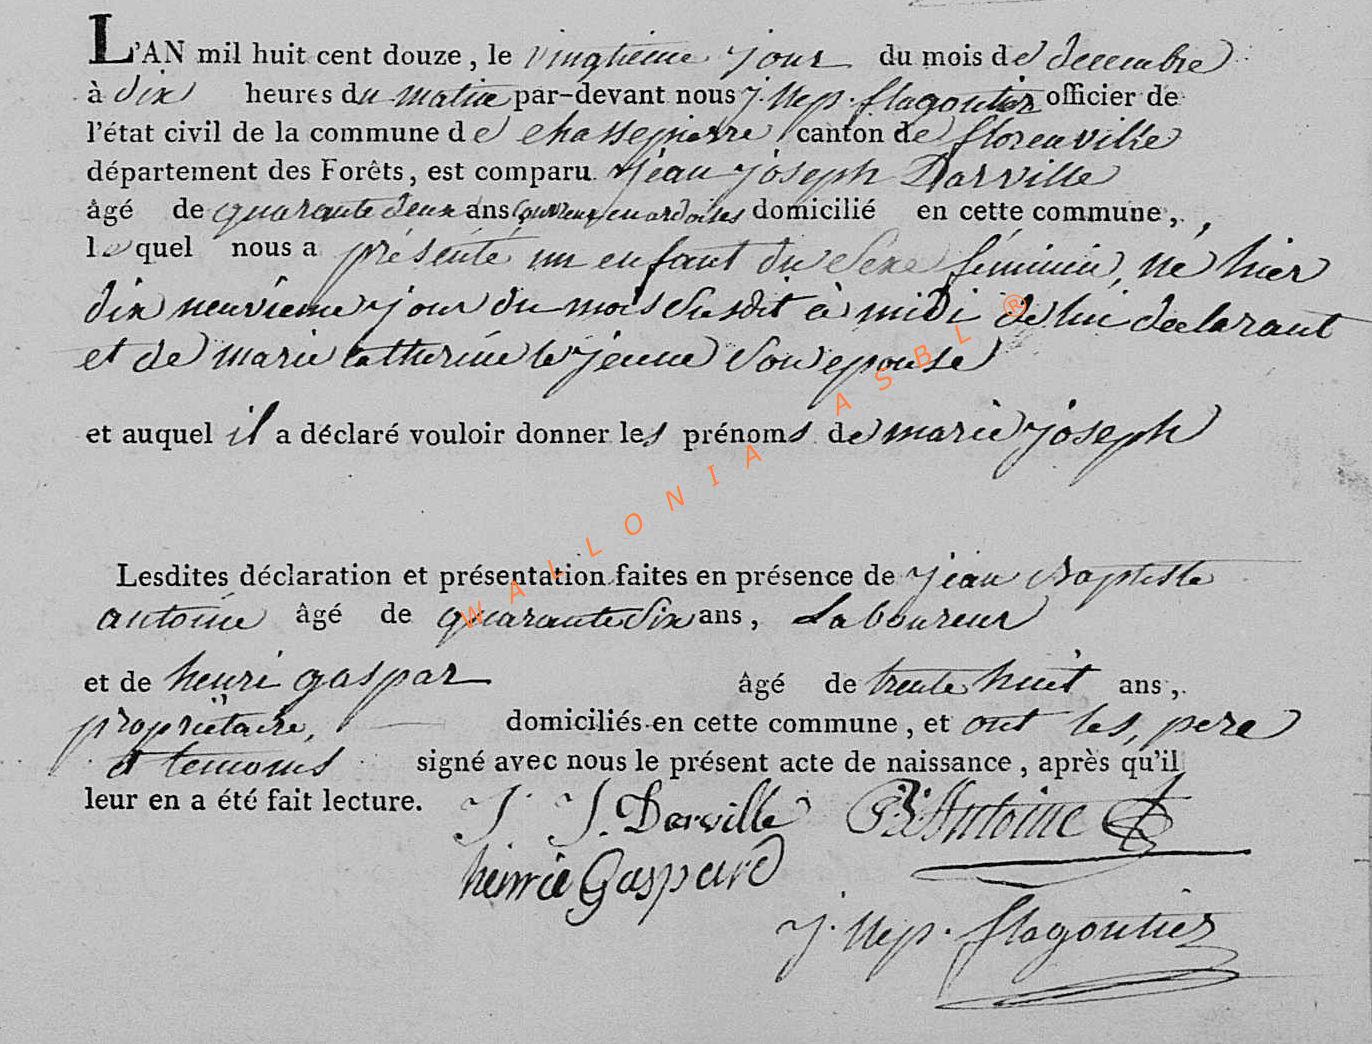 L'AN mil huit cent douze, le vingtieme jour du mois de decembre
à dix heures du matin par-devant nous j. Nep. flagoutier officier de
l'état civil de la commune de chassepierre canton de florenville
département des Forêts, est comparu jean joseph Darville
âgé de quarante deux ans couvreur en ardoises domicilié en cette commune,
lequel nous a présenté un enfant du sexe féminin, né hier
dix neuvieme jour du mois susdit à midi de lui declarant
et de marie catherine le jeune son epouse
et auquel il a déclaré vouloir donner les prénoms de marie joseph
Lesdites déclaration et présentation faites en présence de jean Baptiste
antoine âgé de quarante six ans, Laboureur
et de henri gaspar âgé de trente huit ans,
propriétaire, domiciliés en cette commune, et ont les, pere
et temoins signé avec nous le présent acte de naissance, après qu'il
leur en a été fait lecture.
J. J. Darville Antoine
henrie Gaspard
j. Nep. flagoutier
WALLONIA ASBL ®